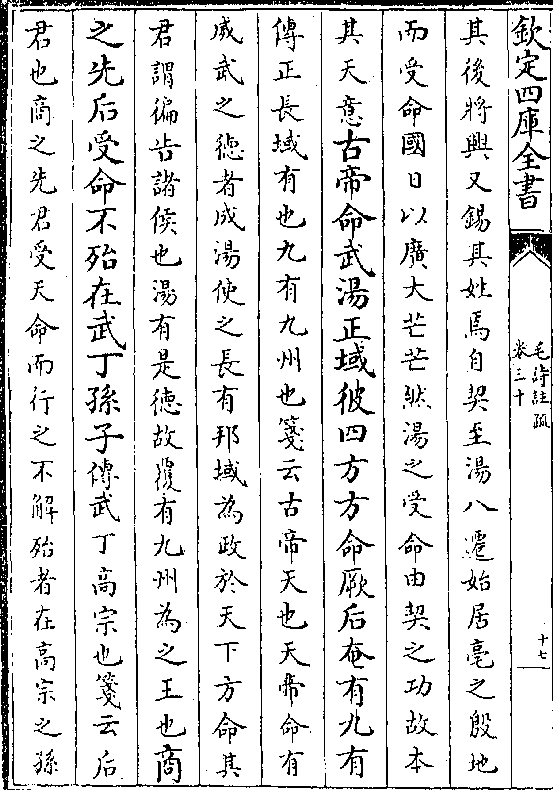 欽定四庫全書
毛詩註疏
卷三十
十七
其後將興又錫其姓焉自契至湯八遷始居亳之殷地
而受命國日以廣大芒芒然湯之受命由契之功故本
其天意古帝命武湯正域彼四方方命厥后奄有九有
傳正長域有也九有九州也箋云古帝天也天帝命有
威武之德者成湯使之長有邦域為政於天下方命其
君謂徧告諸侯也湯有是德故覆有九州為之王也商
之先后受命不殆在武丁孫子傳武丁高宗也箋云后
君也商之先君受天命而行之不解殆者在高宗之孫